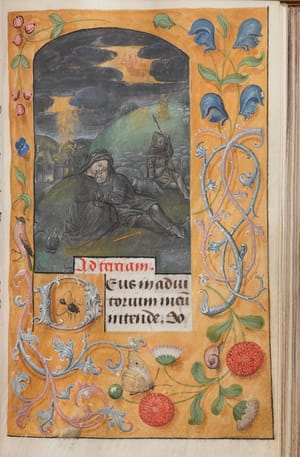 Ad terciam.
Deus in adiu
torium meū
intende. Do